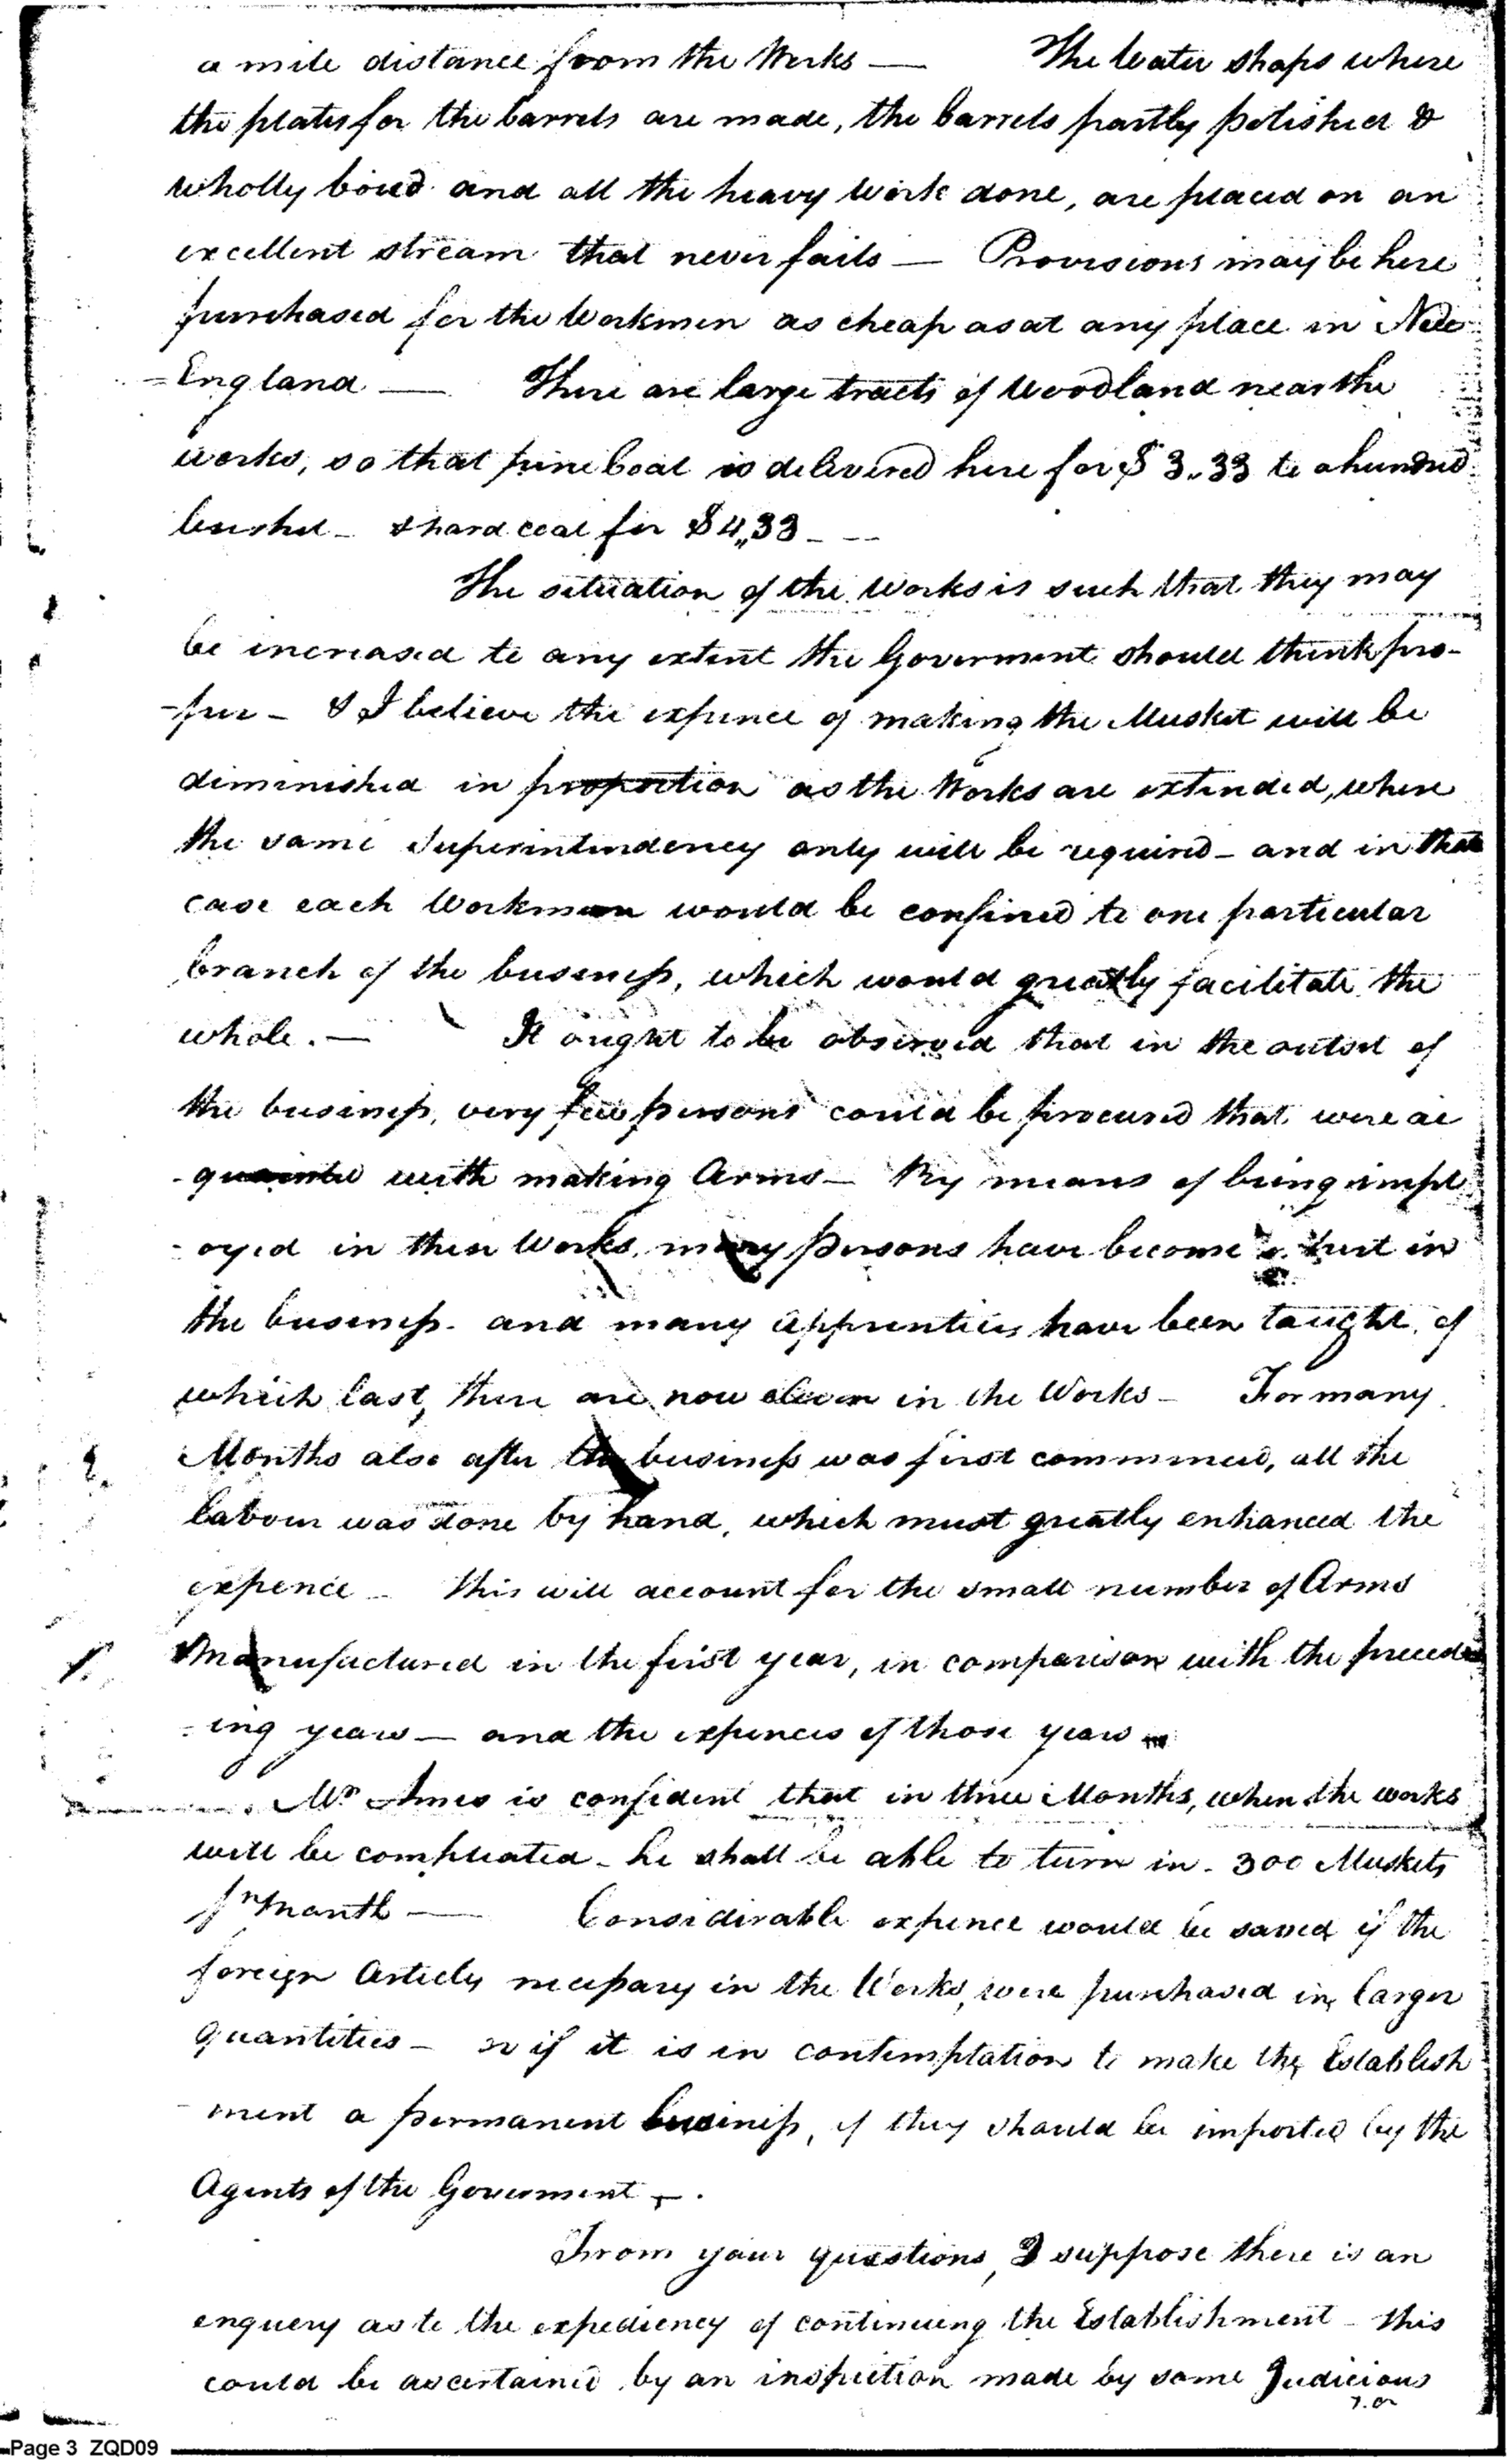 a mile distance from the Works — The Water shops where
the plates for the barrels are made, the barrels partly polished &
wholly bored and all the heavy Work done, are placed on an
excellent stream that never fails — Provisions may be here
purchased for the Workmen as cheap as at any place in New
=England — There are large tracts of Woodland near the
works, so that pine Coal is delivered here for $ 3.33 to a hundred
bushel - & hard coal for $4,,33 - --
The situation of the Works is such that they may
be increased to any extent the Goverment should think pro-
-per - & I believe the expence of making the Musket will be
diminished in proportion as the Works are extended, where
the same Superintendency only will be required - and in that
case each Workman would be confined to one particular
branch of the business, which would greatly facilitate the
whole. — It ought to be observed that in the outset of
the business, very few persons could be procured that were ac
-quainted with making Arms — By means of being impl
-oyed in these Works, many persons have become in
the business - and many apprentices have been taught, of
which last, there are now eleven in the Works - For many
Months also after the business was first commenced, all the
labour was done by hand, which must greatly enhanced the
expence - this will account for the small number of Arms
Manufactured in the first year, in comparison with the preced
-ing years — and the expences of those years
Mr Ames is confident that in three Months, when the works
will be compleated - he shall be able to turn in - 300 Muskets
pr Month — Considerable expence would be saved if the
foreign Articles necessary in the Works, were purchased in larger
quantities - or if it is in contemplation to make the Establish
-ment a permanent business, if they should be imported by the
Agents of the Government -.
From your questions, I suppose there is an
enquery as to the expediency of continuing the Establishment - this
could be ascertained by an inspection made by some Judicious
Page 3 ZQD09